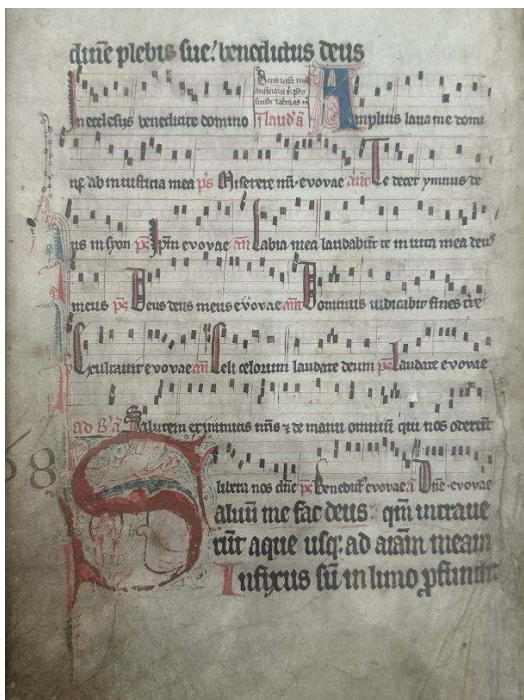 dine plebis sue: benedictus deus
In ecclesiis benedicite domino
i laud' a Amplius laua me domi
ne ab iniusticia mea ps Miserere mei. evovae ant Te decet ymnus de
us in syon ps Ipm evovae an Labia mea laudabunt te in uita mea deus
meus ps Deus deus meus evovae ant Dominus iudicabit fines terre
ps Exultauit evovae an Celi celorum laudate deum ps Laudate evovae
ad B' a Salutem ex inimicis nris & de manu omnium qui nos oderunt
libera nos dne ps Benedict' evovae. a Dne. evovae
Saluum me fac deus: qm intraue
runt aque usq; ad aiam meam
Infixus sum in limo profundi
68